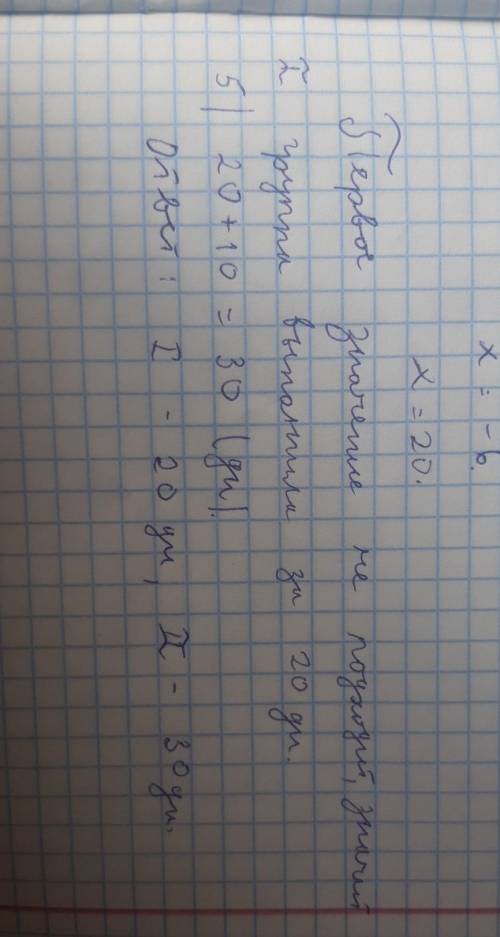 x = -6.
x = 20.
Первое значение не подходит, значит
I группа выполнила за 20 дн.
5) 20 + 10 = 30 (дн).
Ответ: I - 20 дн, II - 30 дн.